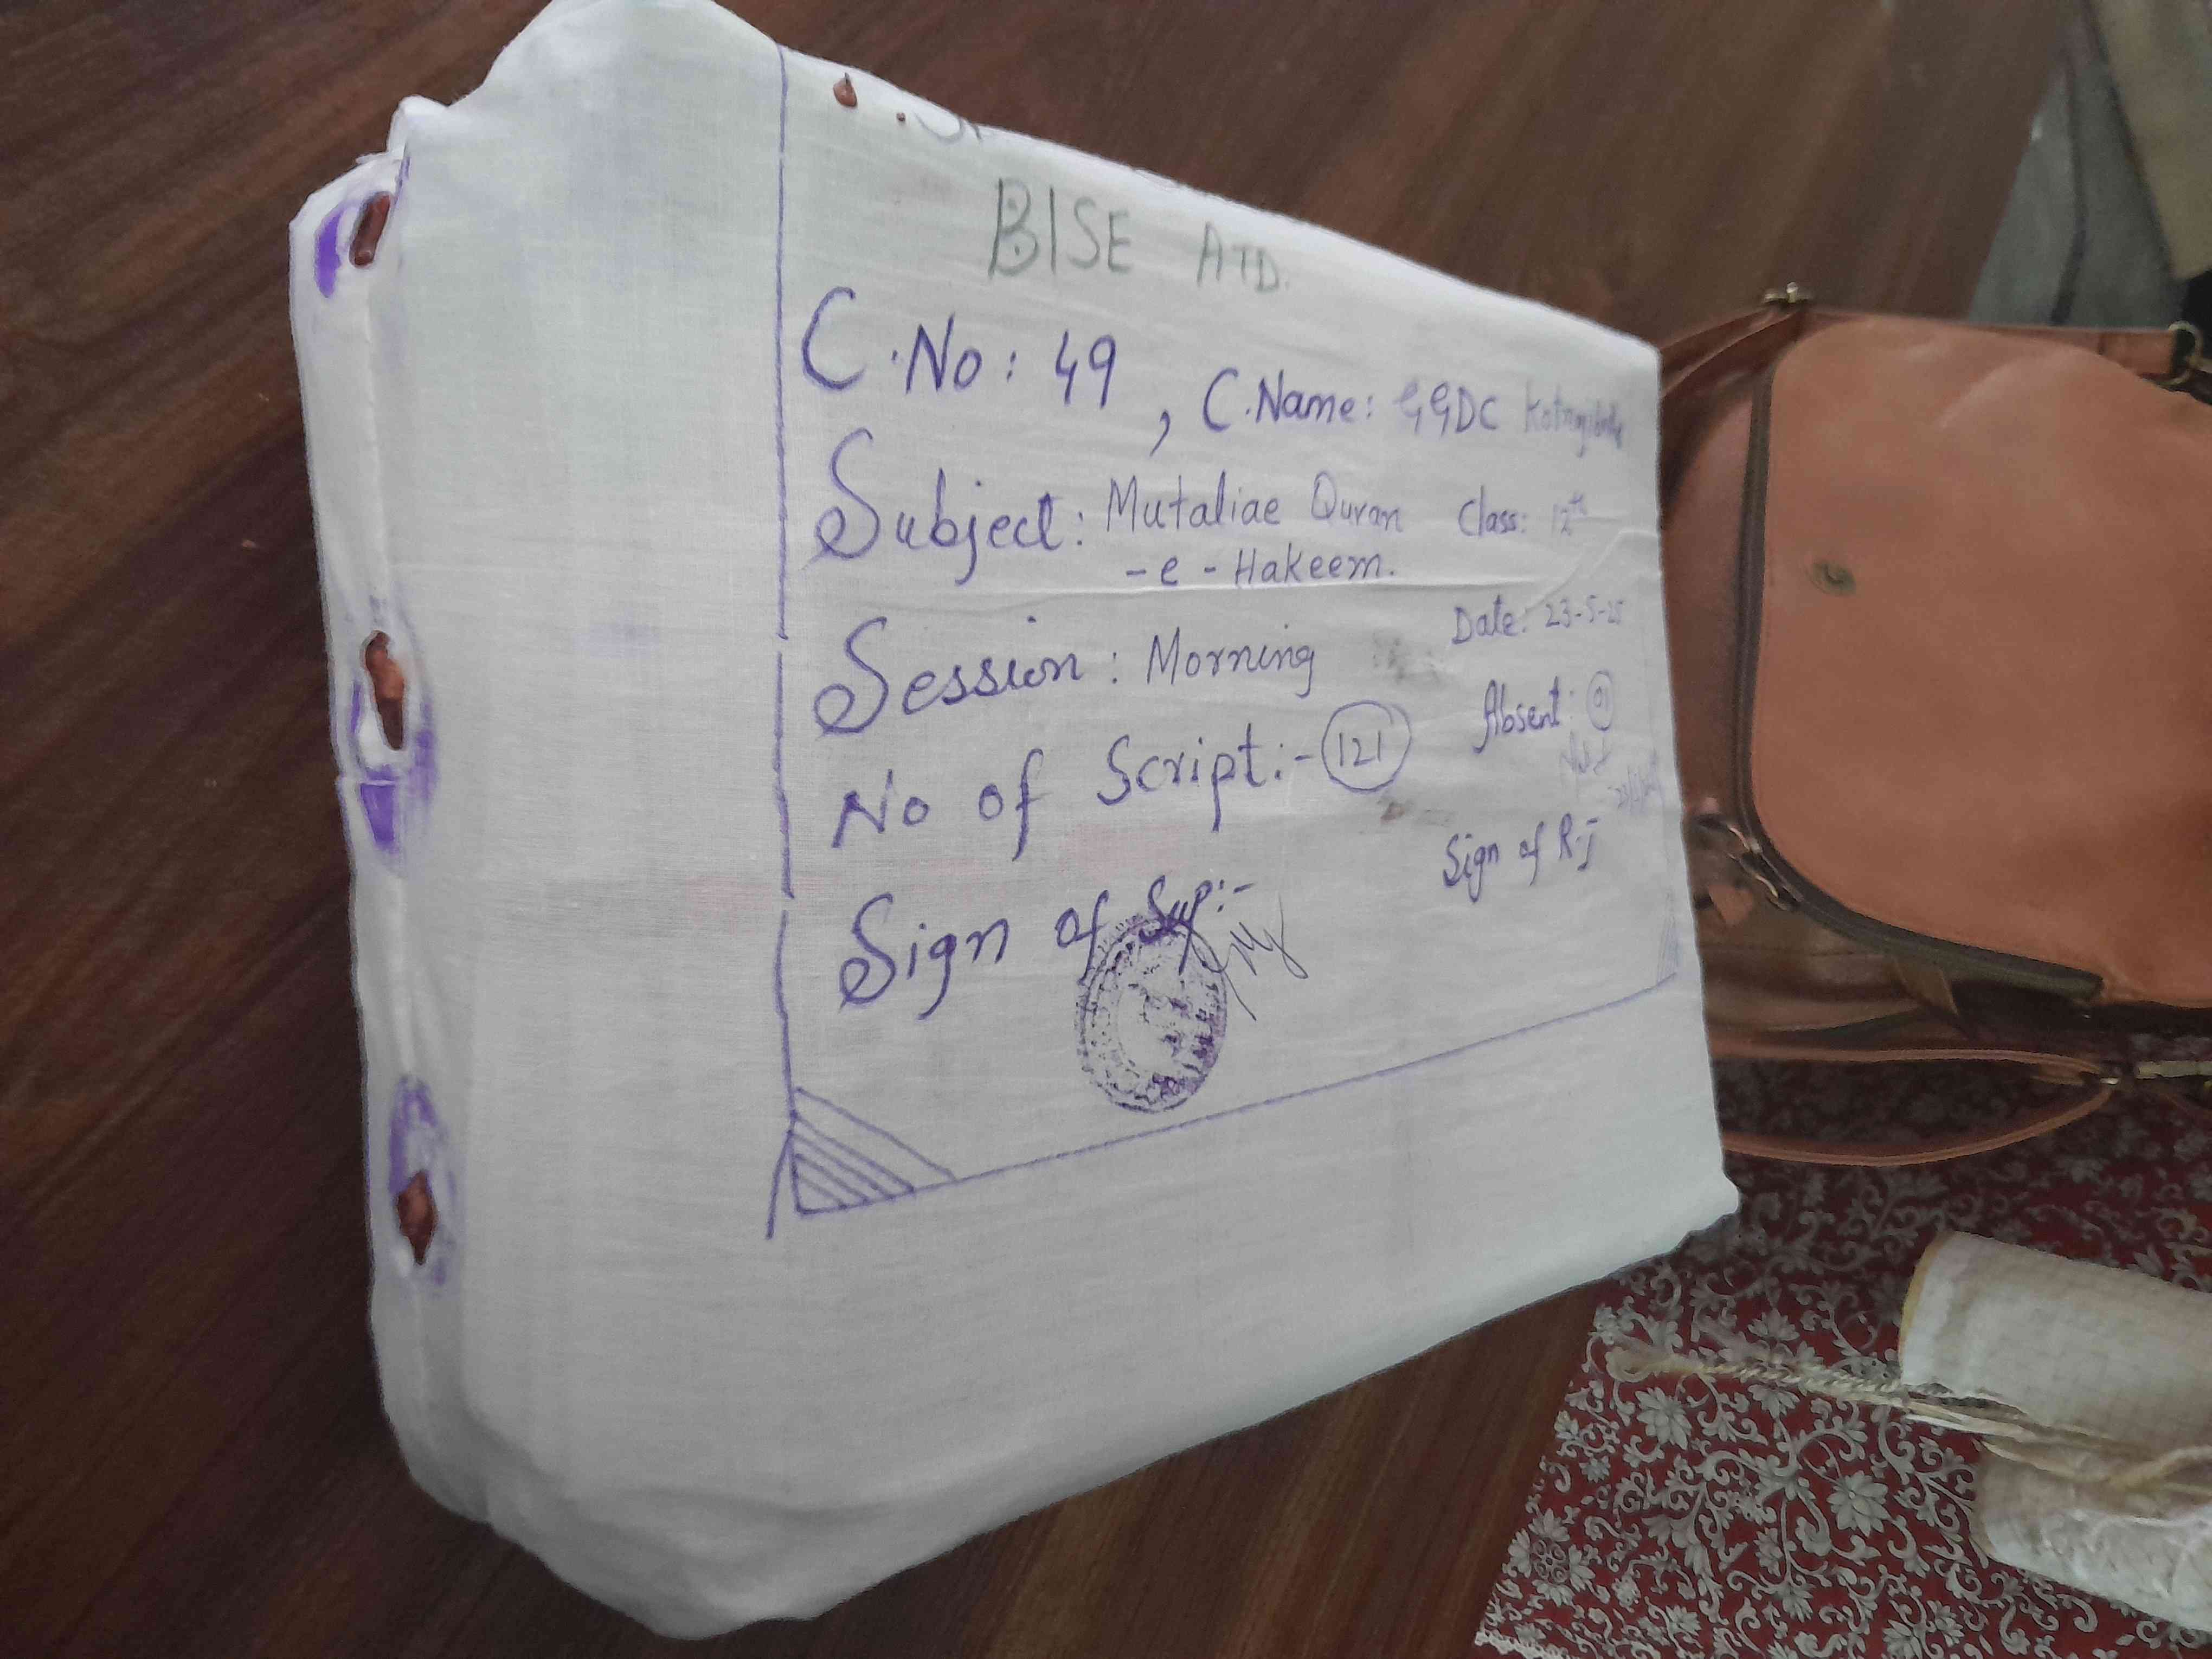 BISE ATD.
C.No: 49, C.Name: GGDC
Subject: Mutaliae Quran Class: 12th
-e-Hakeem.
Session: Morning Date: 23-5-25
No of Script:- 121 Absent:
Sign of Sup:- Sign of R.I